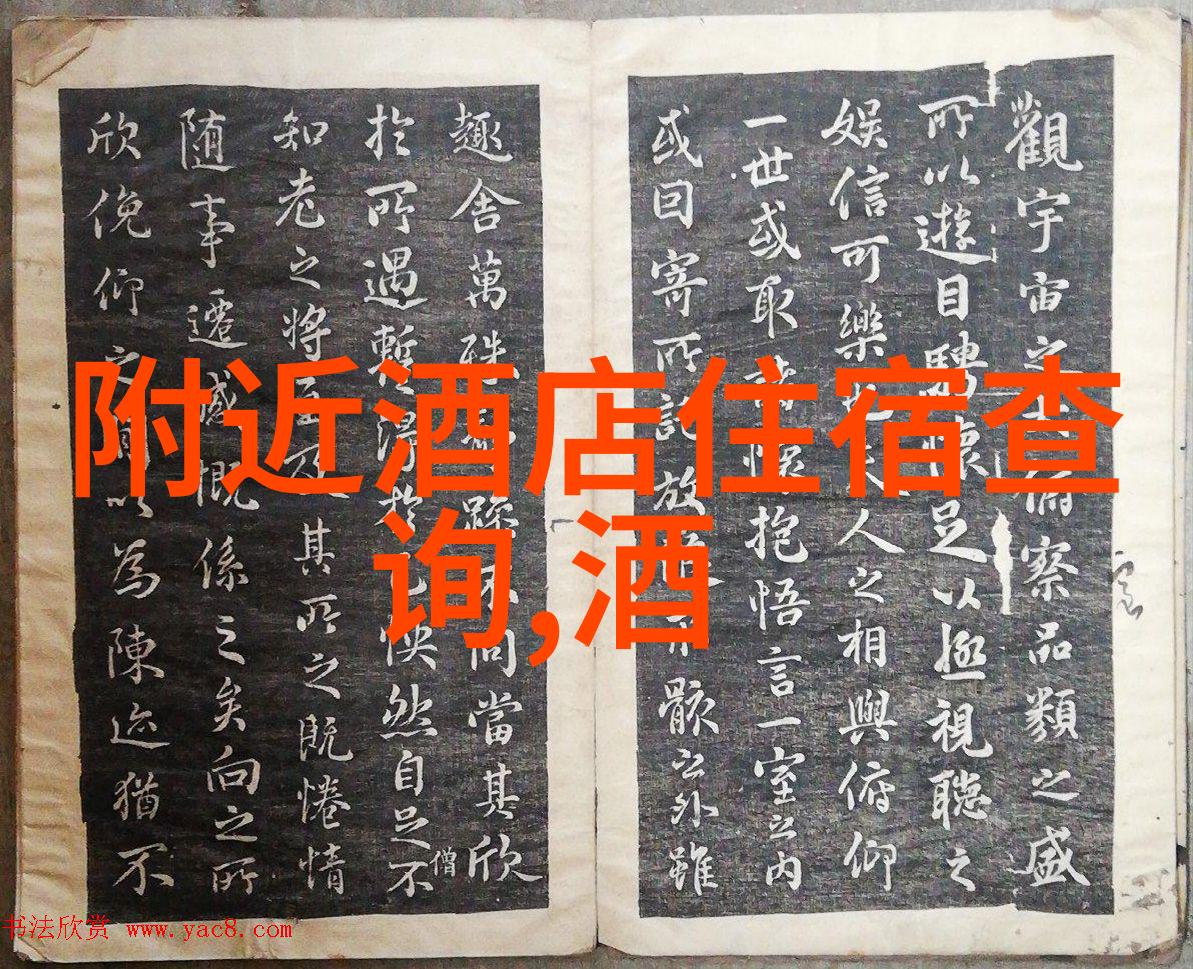 附近酒店住宿查
询,酒
觀宇宙之俯察品類之盛
所以遊目騁懷足以極視聽之
娛信可樂也人之相與俯仰
一世或取諸懷抱悟言一室之內
或因寄所託放骸之外雖
趣舍萬殊不同當其欣
於所遇暫得於怏然自足不
僧
知老之將至其所之既惓情
随事遷感慨係之矣向之所
欣俛仰之以為陳迹猶不
书法欣赏 www.yac8.com